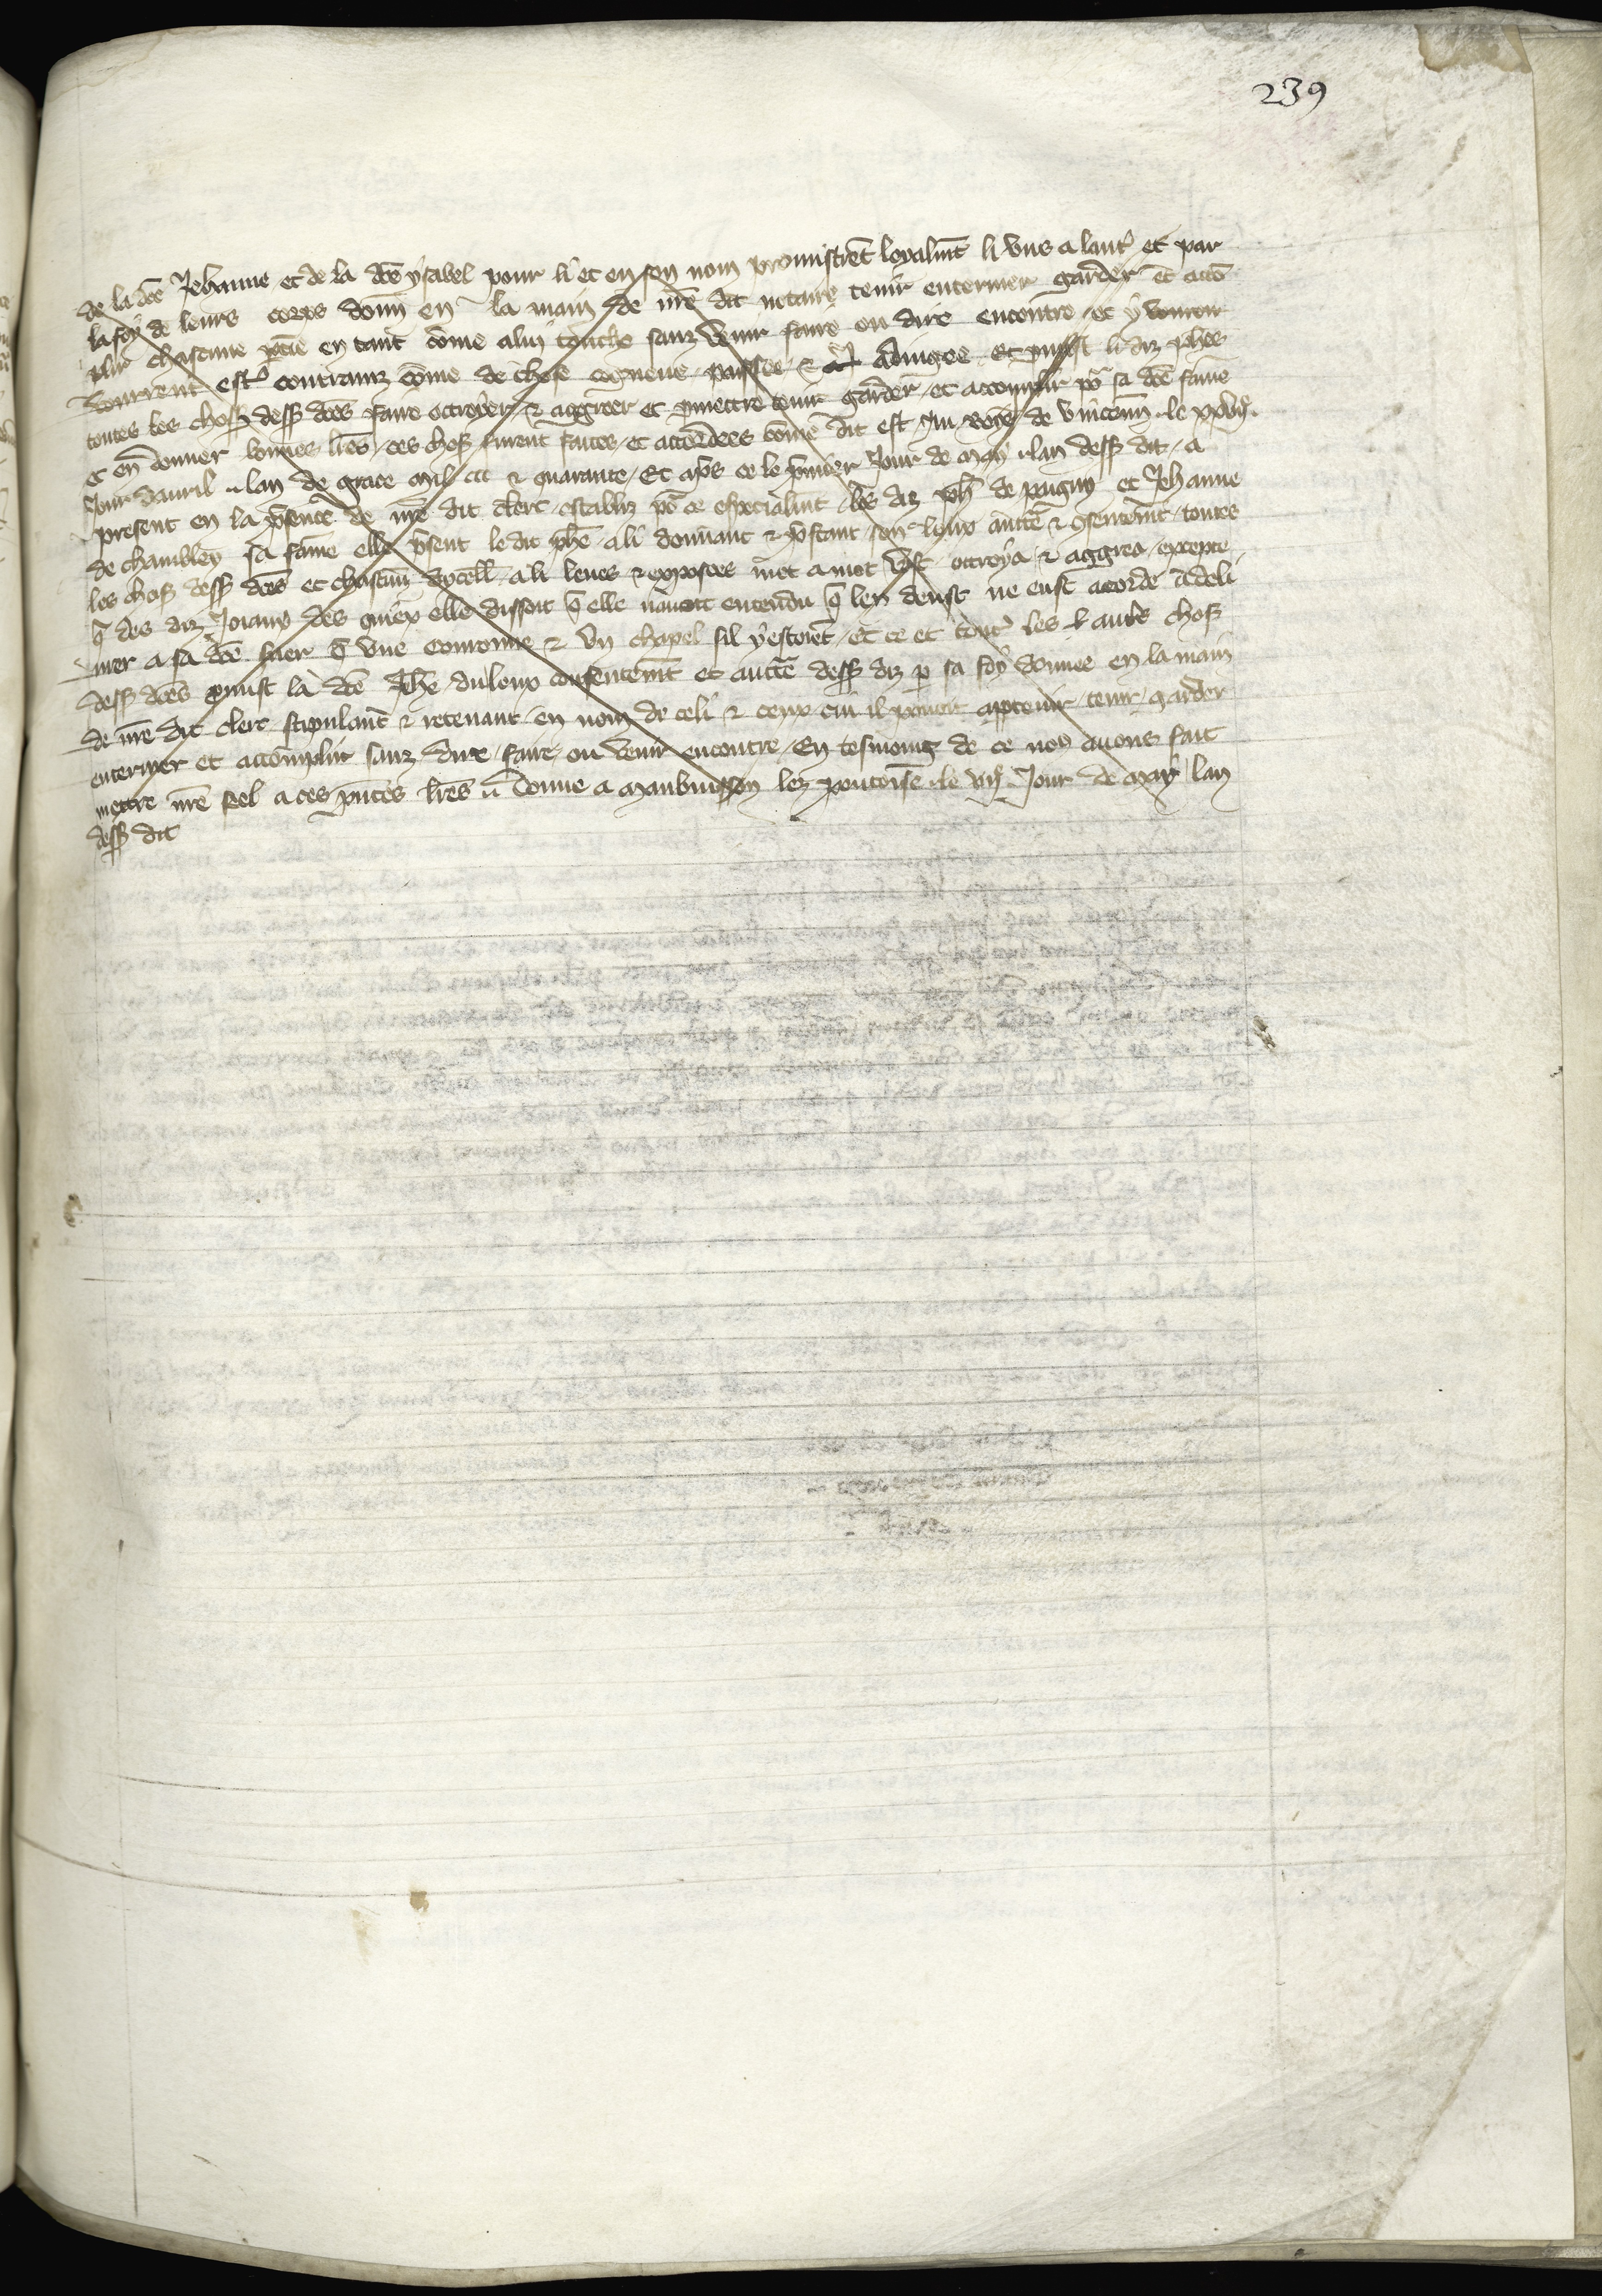 239
de la dce Jehanne et de la dce ysabel pour li et en son nom promistrent loyalmt li uns a lautre et par
la foy de leurs corps donn en la main de nre dit notaire tenir enteriner garder et acco
plir chascune ptie en tant come a luy touche sanz venir faire ou dire encontre et y vourent
vourrent estre contrainz come de chose cogneue passee & adiugee Et pmist li diz phes
toutes les choses dess dces faire octroyer & aggreer et pmettre tenir garder et accomplir por sa dce fame
& en donner bonnes lres ces choses furent faites et accordees come dit est Au boys de Vincenn le xxviije
Jour davril lan de grace mil ccc & quarante Et apres ce le premier Jour de may lan dess dit a
present en la psence de nre dit clerc establiz por ce especialmt les diz ph de pugny et Jehanne
de chambley sa fame elle psent le dit phe a li donnant & pstant son loux auctte & 9sentemt toutes
les choses dess dces et chascun dycell a li leues & exposees mot a mot vost octroya & aggrea excepte
q des diz Joiaux des quiex elle dissoit q elle navoit entendu q len deust ne eust acorde a deli
vrer a sa dce suer q une couronne & un chapel sil y estoiet Et ce et toutes les autres choses
dess dces pmist la dce Jhe du loux consentemt et auctte dess diz p sa foy donnee en la main
de nre dit clerc stipulant & recevant en nom de celi & ceux cui il pourroit apptenir tenir garder
enteriner et accomplir sanz dire faire ou venir encontre En tesmoing de ce nous avons fait
mettre nre seel a ces pntes lres Donne a Maubuisson lez pontoise le viije Jour de May lan
dess dit